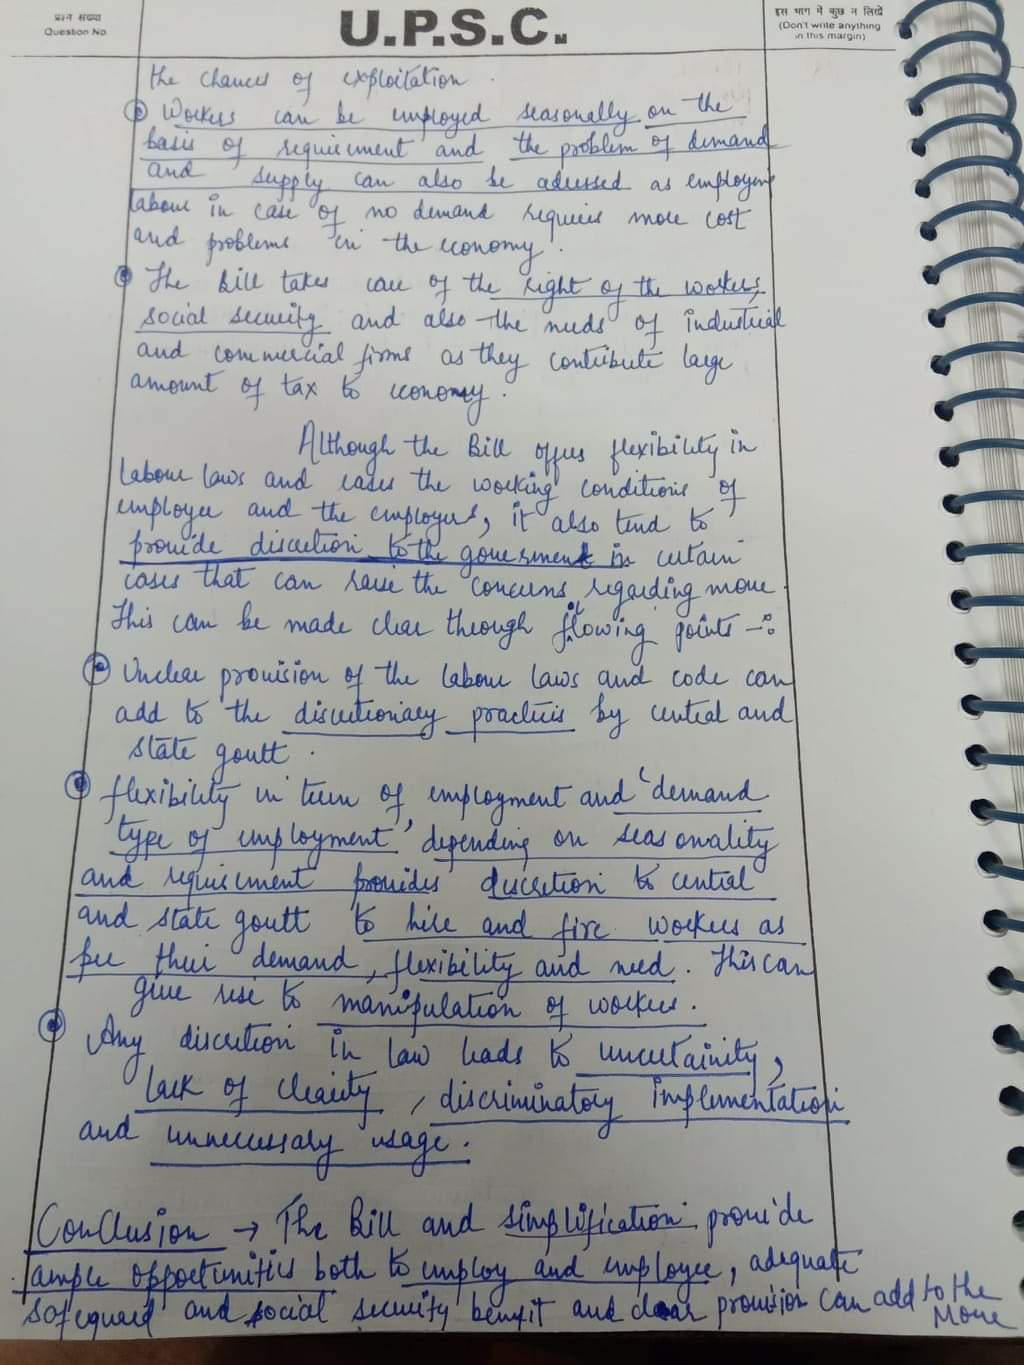 प्रश्न संख्या
Question No.
U.P.S.C.
इस भाग में कुछ न लिखें
(Don't write anything
in this margin)
the chances of exploitation.
Workers can be employed seasonally on the
basis of requirement and the problem of demand
and supply can also be adressed as employing
labour in case of no demand requires more cost
and problems in the economy.
The Bill takes care of the right of the workers,
social security and also the needs of industrial
and commercial firms as they contribute large
amount of tax to economy.
Although the Bill offers flexibility in
labour laws and eases the working conditions of
employee and the employers, it also tend to
provide discretion to the government in certain
cases that can raise the concerns regarding move.
This can be made clear through following points -:
Unclear provision of the labour laws and code can
add to the discretionary practices by central and
state goutt.
flexibility in term of employment and 'demand
type of employment' depending on seasonality
and requirement provides discretion to central
and state goutt to hire and fire workers as
per their demand, flexibility and need. This can
give rise to manipulation of workers.
Any discretion in law leads to uncertainity,
lack of clearity, discriminatory implementation
and unnecessary usage.
Conclusion → The Bill and simplification provide
ample opportunities both to employ and employee, adequate
safeguard and social security benefit and clear provision can add to the
move